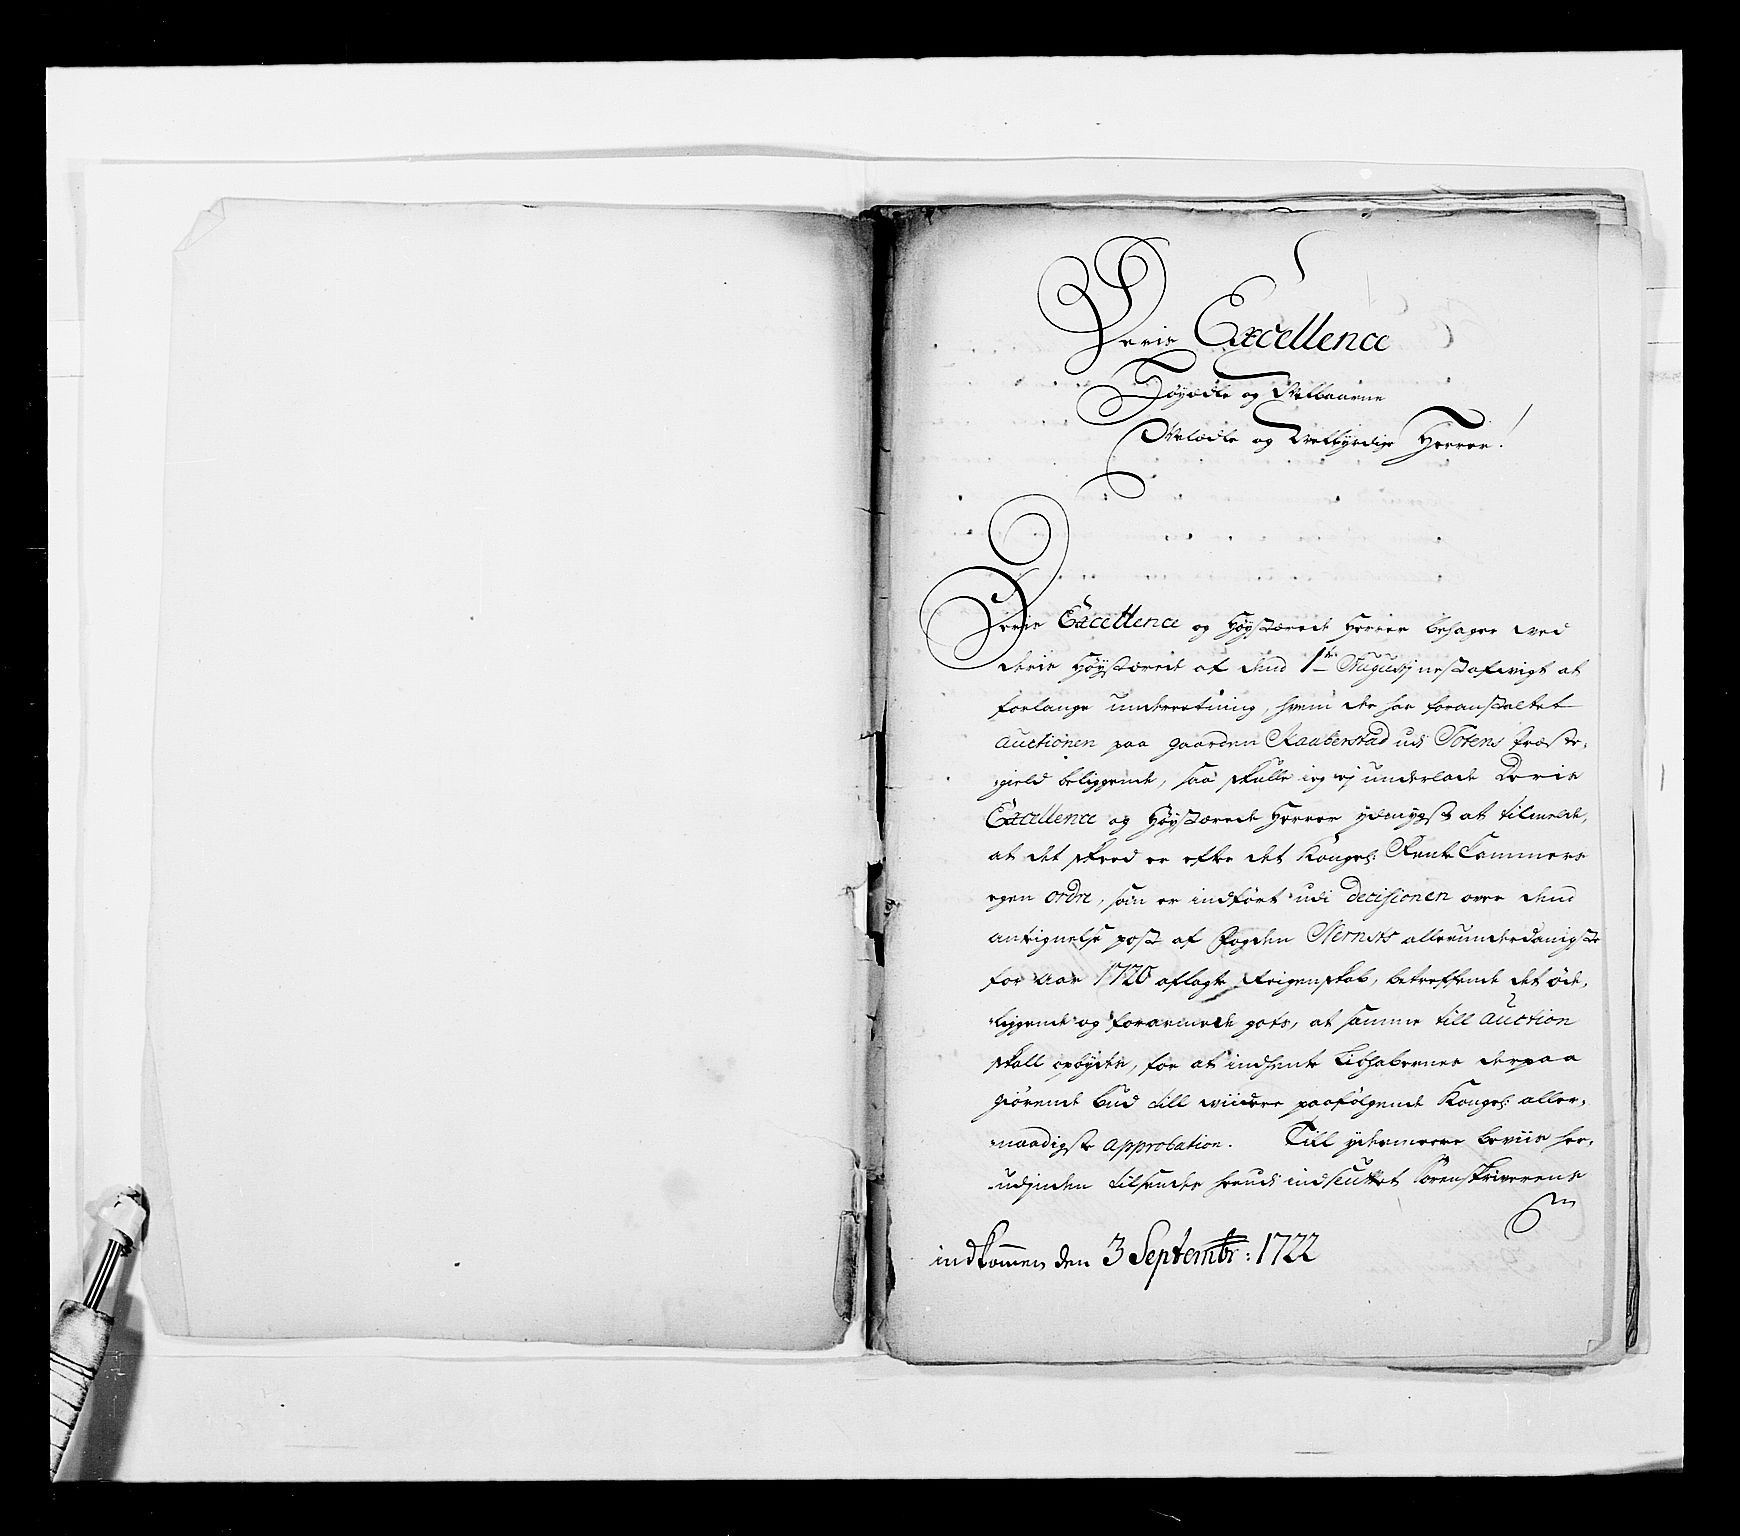 Deris Excellence
Høyædle og Velbaarne
Velædle og Velbyrdige Herrer!
Deris Excellence og Høystærede Herrer behager ved
deris Høystærede af dend 1te Augustj nestafvigt at
forlange underretning, hvem der har foranstaltet
Auctionen paa gaarden Raaberstad udj Totens Præste-
gield beliggende, saa skulle ieg ej underlade Deris
Excellence og Høystærede Herrer ydmygst at tilmelde,
at det skeed er efter det Kongel: Rente Cammers
egen ordre, som er indført udi decisionen over dend
antegnelse post af fogden Nernsts allerunderdanigste
for Aar 1720 aflagte Reigenskab, betreffende det øde,
liggende og forarmede gots, at samme till Auction
skall opbydes, for at indhente Liebhabernes derpaa
giørende bud till viidere paafølgende Kongel: aller,
naadigste approbation. Till ydermeere beviis her,
udjnden tilsendes herudj indsluttet Sorenskriverens
indkommen den 3 Septembr: 1722